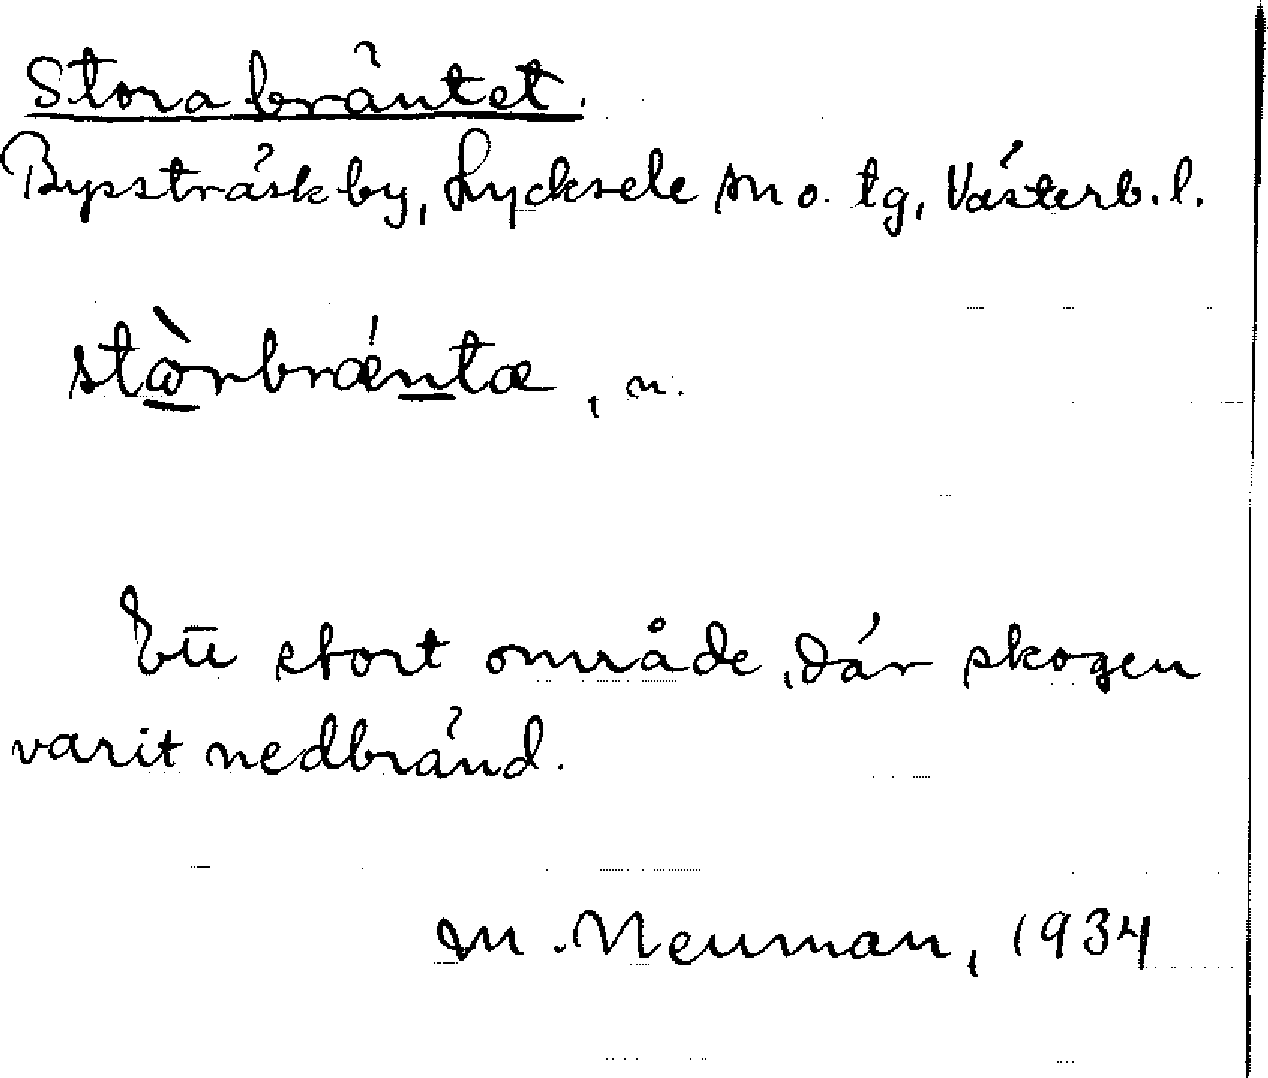 Stora bräntet.
Bysträsk by, Lycksele sn o. tg, Västerb. l.
stɷ̀rbrǽntæ, n.
Ett stort område, där skogen
varit nedbränd.
M. Neuman, 1934